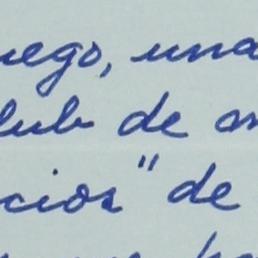 uego, una
lub de
cios" de